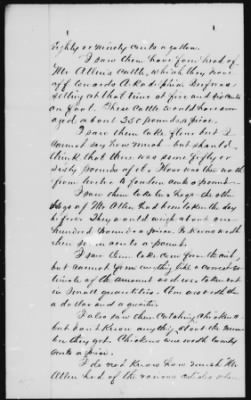 Eighty or ninety cents a gallon.
I saw them have four head of
Mr Allen's Cattle, which they drove
off towards Arkadelphia. Beef was
selling at that time at five and six cents
on foot. These Cattle would have aver
aged about 350 pounds apiece.
I saw them take flour but I
cannot say how much - but should
think that there was some fifty or
sixty pounds of it. Flour was then worth
from twelve to fourteen cents a pound.
I saw them take two hogs the other
hogs of Mr Allen had been taken the day
before. They would weigh about one
hundred pounds apiece. Pork was worth
then six cents a pound.
I saw them take corn from the crib,
but cannot give anything like a correct es-
timate of the amount as it was taken out
in small quantities. Corn was worth then
a dollar and a quarter.
I also saw them Catching Chickens
but don't know anything about the num-
ber they got. Chickens were worth twenty
cents a piece.
I do not know how much Mr
Allen had of the various articles